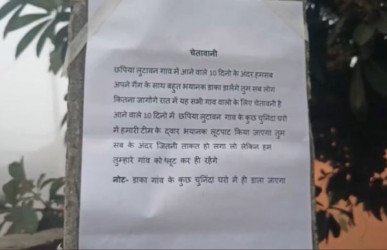 चेतावानी
छपिया लुटावन गाव में आने वाले 10 दिनो के अंदर हमसब
अपने गैंग के साथ बहुत भयानक डाका डालेंगे तुम सब लोग
कितना जागोगे रात में यह सभी गाव वालो के लिए चेतावनी है
आने वाले 10 दिनो में छपिया लुटावन गाव के कुछ चुनिंदा घरो
में हमारी टीम के द्वार भयानक लूटपाट किया जाएगा तुम
सब के अंदर जितनी ताकत हो लगा लो लेकिन हम
तुम्हारे गांव को लूट कर ही रहेंगे
नोट- डाका गांव के कुछ चुनिंदा घरो में ही डाला जाएगा